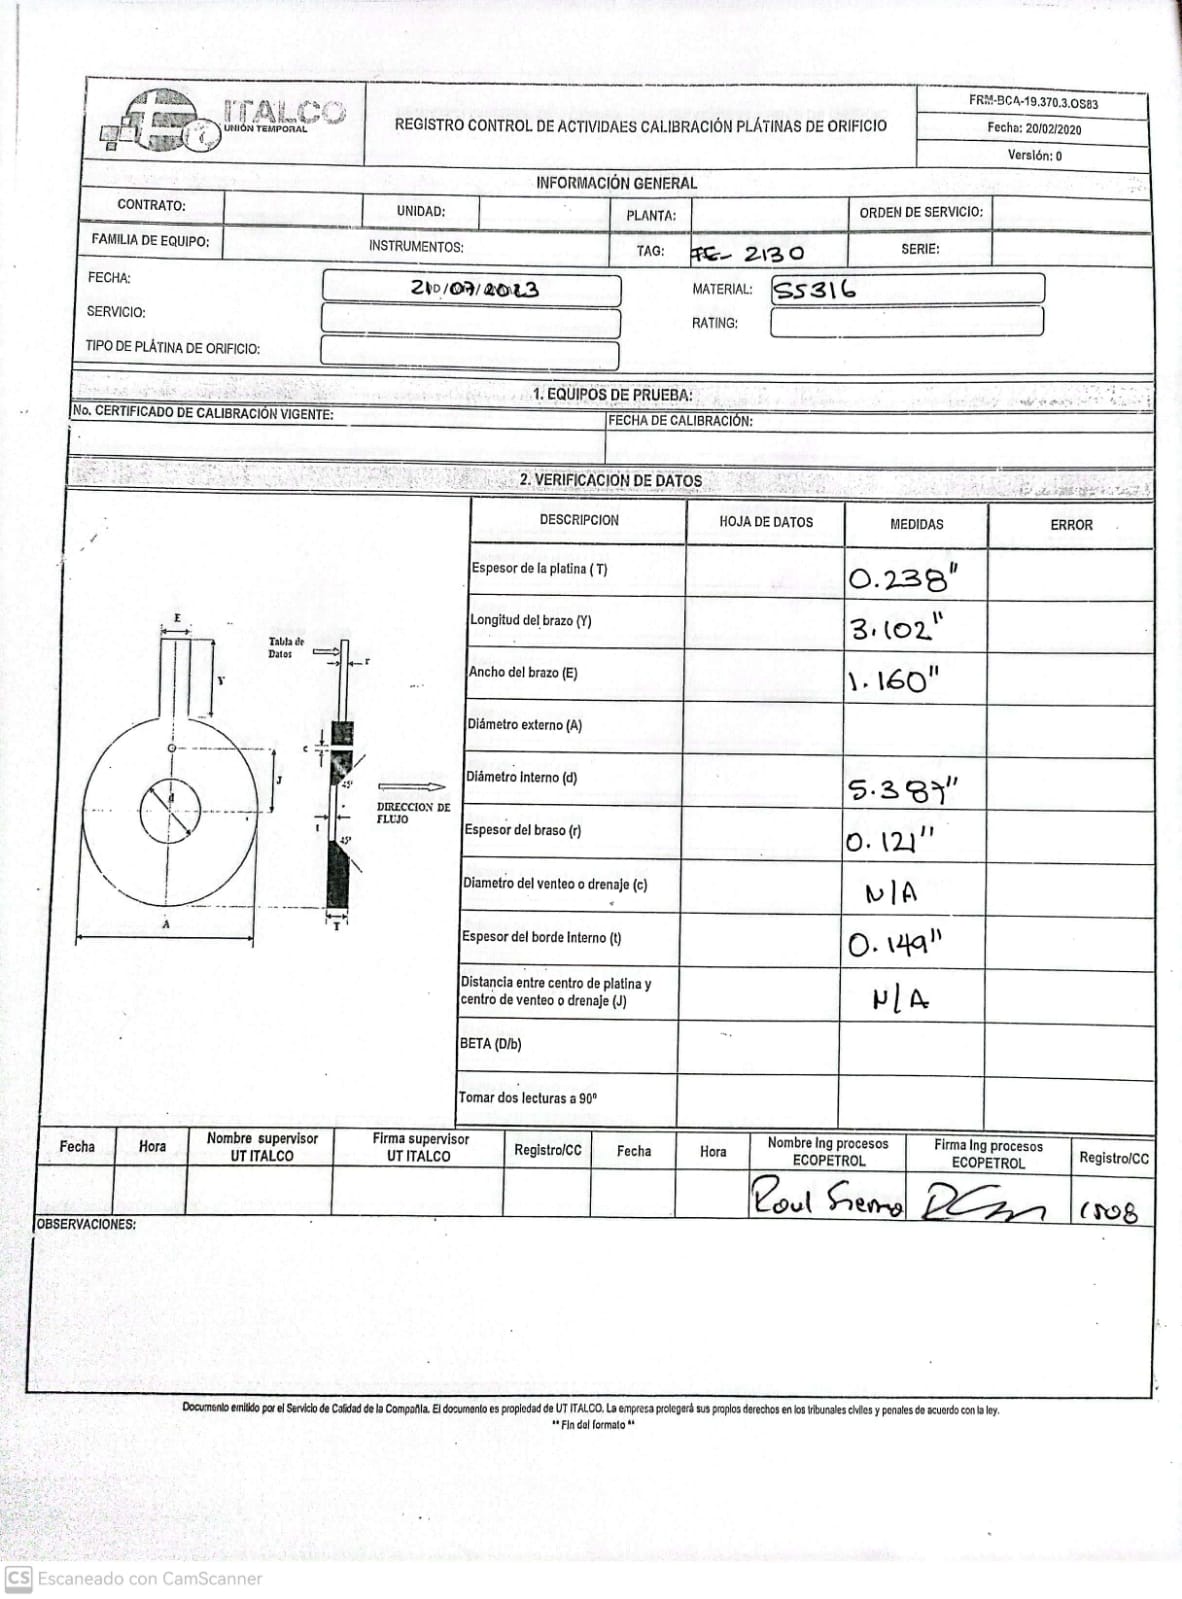 ITALCO
UNIÓN TEMPORAL
REGISTRO CONTROL DE ACTIVIDAES CALIBRACIÓN PLÁTINAS DE ORIFICIO
FRM-BCA-19.370.3.OS83
Fecha: 20/02/2020
Versión: 0
INFORMACIÓN GENERAL
CONTRATO: UNIDAD: PLANTA: ORDEN DE SERVICIO:
FAMILIA DE EQUIPO: INSTRUMENTOS: TAG: FE- 2130 SERIE:
FECHA: /07/2023 MATERIAL: SS316
SERVICIO: RATING:
TIPO DE PLÁTINA DE ORIFICIO:
1. EQUIPOS DE PRUEBA:
No. CERTIFICADO DE CALIBRACIÓN VIGENTE: FECHA DE CALIBRACIÓN:
2. VERIFICACION DE DATOS
DESCRIPCION HOJA DE DATOS MEDIDAS ERROR
Espesor de la platina ( T) 0.238"
Longitud del brazo (Y) 3.102"
Ancho del brazo (E) 1.160"
Diámetro externo (A)
Diámetro Interno (d) 5.387"
Espesor del braso (r) 0.121"
Diametro del venteo o drenaje (c) N/A
Espesor del borde Interno (t) 0.149"
Distancia entre centro de platina y
centro de venteo o drenaje (J) N/A
BETA (D/b)
Tomar dos lecturas a 90º
E
Tabla de
Datos
r
Y
c
J
d
45º
DIRECCION DE
FLUJO
t
45º
A
T
Fecha Hora Nombre supervisor
UT ITALCO Firma supervisor
UT ITALCO Registro/CC Fecha Hora Nombre Ing procesos
ECOPETROL Firma Ing procesos
ECOPETROL Registro/CC
Raul Sierra 1508
OBSERVACIONES:
Documento emitido por el Servicio de Calidad de la Compañía. El documento es propiedad de UT ITALCO. La empresa protegerá sus propios derechos en los tribunales civiles y penales de acuerdo con la ley.
** Fin del formato **
CS Escaneado con CamScanner